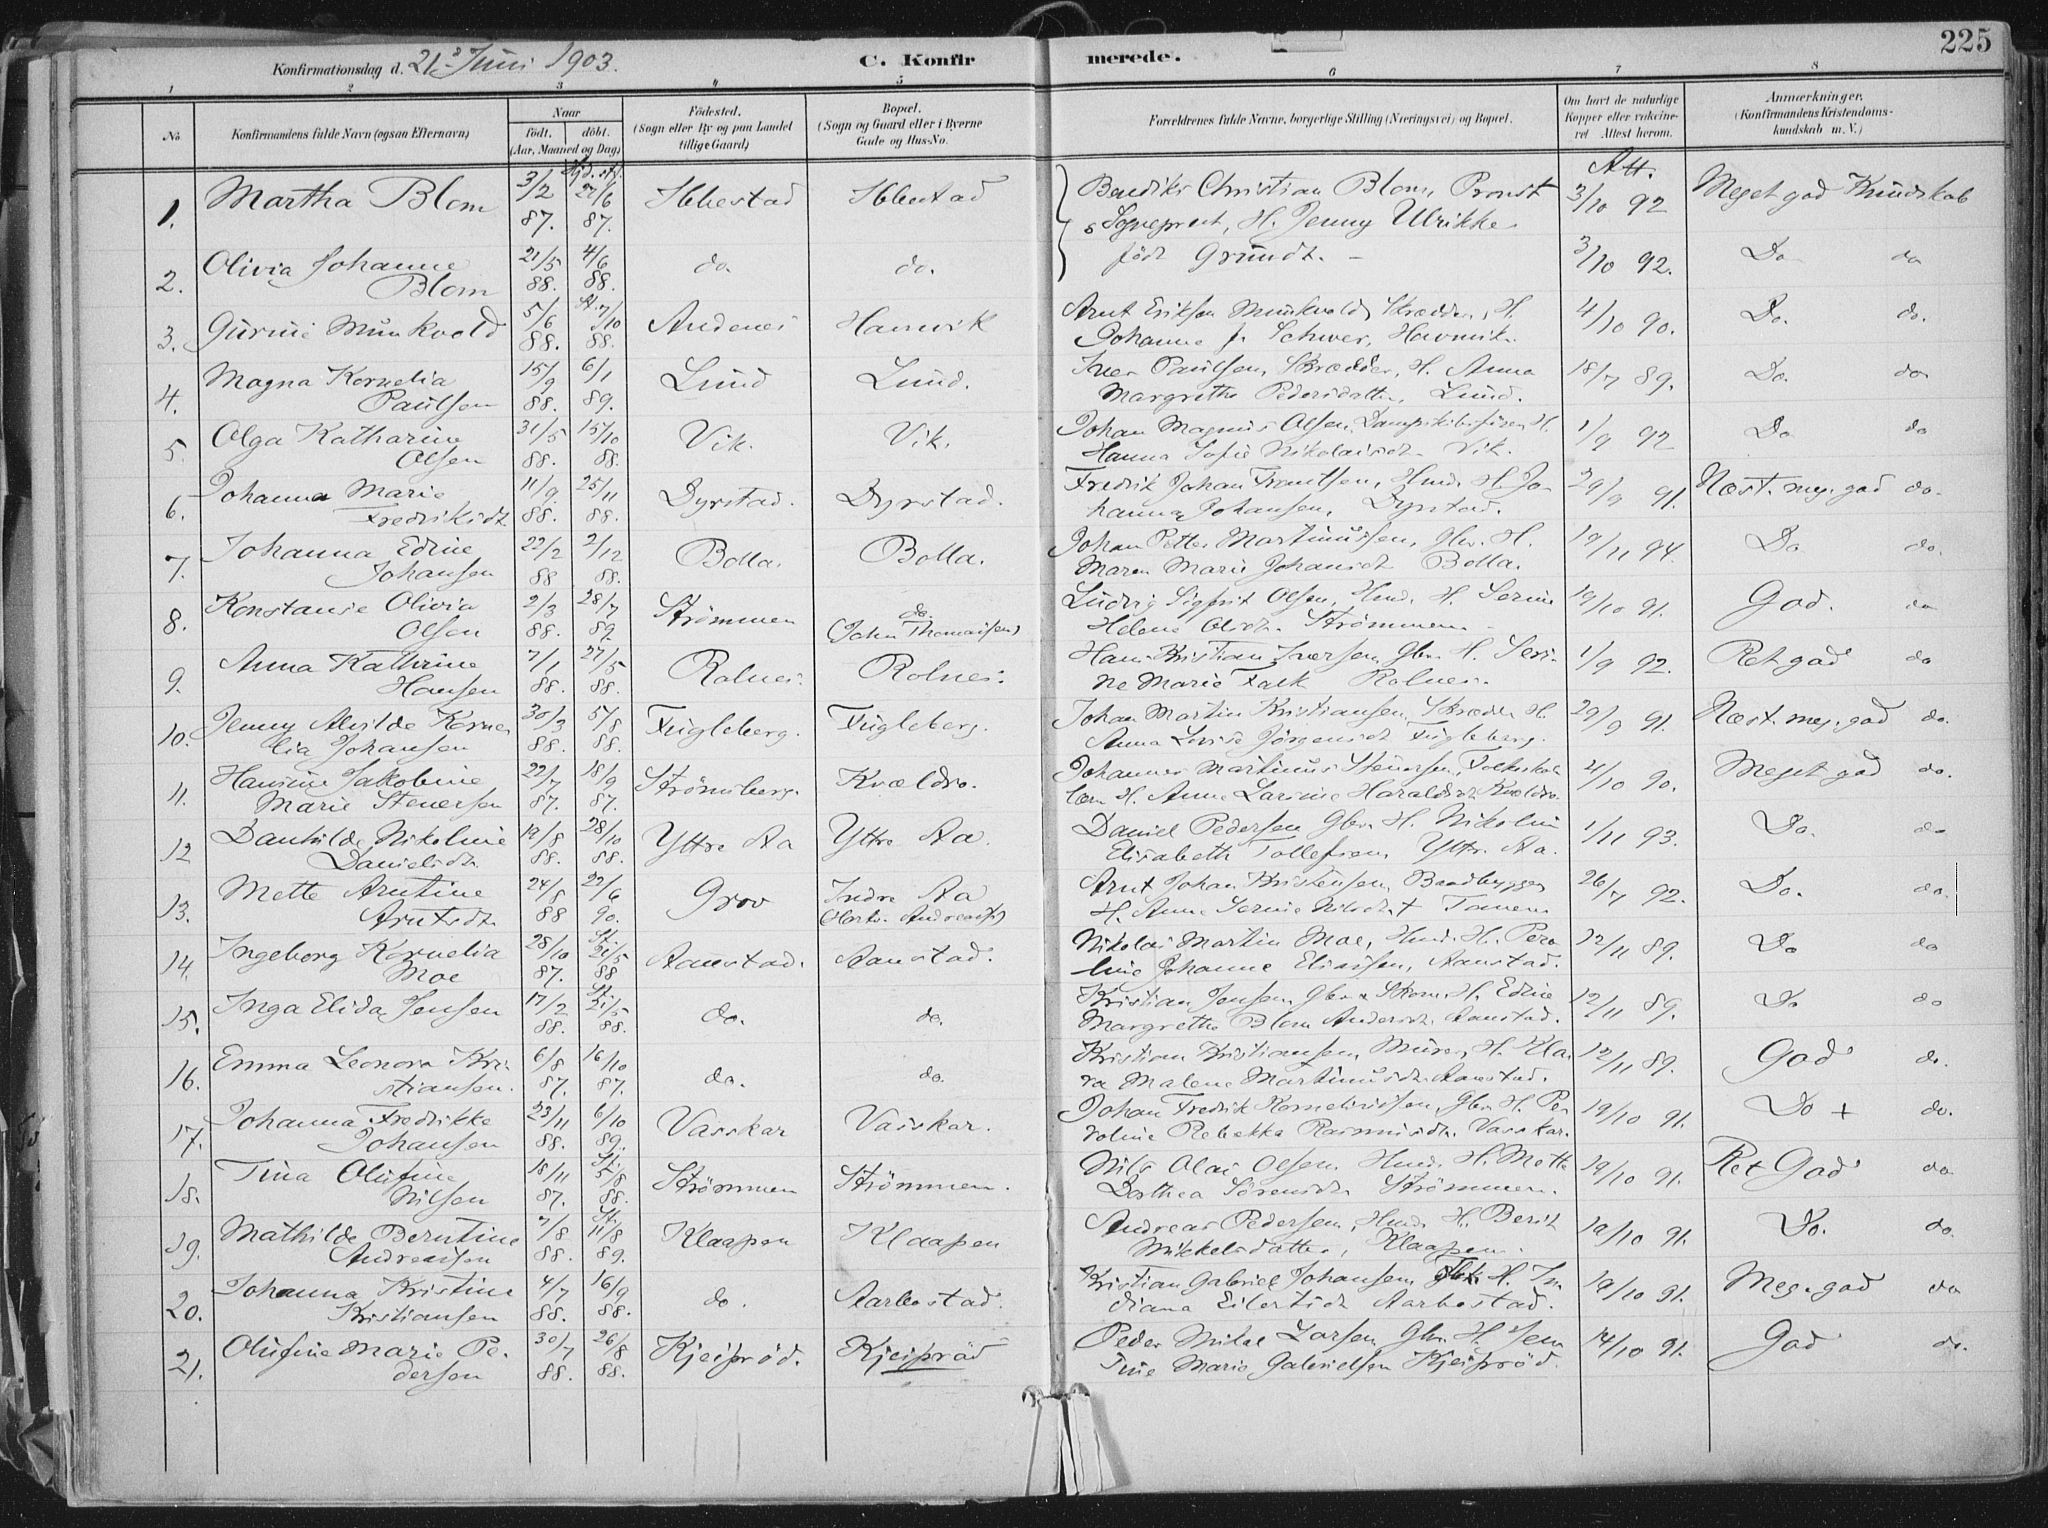 225
Konfirmationsdag d. 21 Juni 1903.
C. Konfirmerede.
1 2 3 4 5 6 7 8
No
Konfirmandens fulde Navn (ogsaa Efternavn)
Naar
födt. döbt.
(Aar, Maaned og Dag)
Födested.
(Sogn eller By og paa Landet
tillige Gaard)
Bopæl.
(Sogn og Gaard eller i Byerne
Gade og Hus-No.
Forældrenes fulde Navne, borgerlige Stilling (Næringsvei) og Bopæl.
Om havt de naturlige
Kopper eller vakcine-
ret Attest herom.
Anmærkninger.
(Konfirmandens Kristendoms-
kundskab m. V.)
1. Martha Blom 3/2 87. 27/6 87. Ibbestad Ibbestad Benedikt Christian Blom, Provst Att. 3/10 92 Meget god Kundskab
& Sogneprest, H. Jenny Ulrikke
2. Olivia Johanne 21/5 4/6 do. do. födt Grundt. 3/10 92. Do do
Blom 88. 88.
3. Gurine Munkvold 5/6 88. 7/10 88. Andenes Havnvik Arnt Eriksen Munkvold, Skrædder, H. 4/10 90. Do. do.
Johanne f. Schwer, Havnvik.
4. Magna Kornelia 15/9 6/1 Lund Lund. Iver Paulsen, Skrædder, H. Anna 18/7 89. Do. do
Paulsen 88. 89. Margrethe Pedersdatter, Lund.
5. Olga Katharine 31/5 15/10 Vik. Vik. Johan Magnus Olsen, H. 1/9 92 Do do
Olsen 88. 88. Hanna Sofie Nikolaisdt. Vik.
6. Johanna Marie 11/9 25/11 Dyrstad. Dyrstad. Fredrik Johan Frantsen, Hmd. H. Jo- 29/9 91. Næst. meg. god do.
Fredriksdt 88. 88. hanna Johansen, Dyrstad.
7. Johanna Edine 22/2 2/12 Bolla. Bolla. Johan Petter Martinussen, Gbr. H. 19/11 94. Do do.
Johansen 88 88. Maren Marie Johansdt Bolla.
8. Konstanse Olivia 2/3 28/7 Strömmen do Ludvig Sigfrit Olsen, Hmd. H. Serine 19/10 91. God. do
Olsen 88. 89. (John Thomassen) Helene Olsdt. Strömmen
9. Anna Kathrine 7/1 27/5 Rolnes. Rolnes. Hans Kristian Iversen, Gbr. H. Seri- 1/9 92. Ret god do
Hansen 88. 88. ne Marie Falk Rolnes.
10. Jenny Alvilde Korne- 30/3 5/8 Fugleberg. Fugleberg. Johan Martin Kristiansen, Skrædder H. 29/9 91. Næst. meg. god do.
lia Johansen 88. 88. Anna Lovise Jörgensdt Fugleberg.
11. Hansine Jakobine 22/7 18/9 Strömsberg. Kvældro. Johannes Martinus Stenersen, Folkeskole- 4/10 90. Meget god do.
Marie Stenersen 87. 87. lær. H. Anne Larsine Haraldsdt Kvældro.
12 Danhilde Nikoline 19/8 28/10 Yttre Aa Yttre Aa. Daniel Pedersen Gbr. H. Nikoline 1/11 93. Do. do
Danielsdt. 88. 88. Elisabeth Tollefsen, Yttr. Aa.
13. Mette Arntine 24/8 22/6 Grov Indre Aa Arnt Johan Kristensen, Baadbygger 26/7 92. Do. do.
Arntsdt. 88 90. H. Anne Serine Nilsdt
14. Ingeborg Kornelia 28/10 21/5 Aanstad. Aanstad. Nikolai Martin Moe, Hmd. H. Pero- 12/11 89. Do do
Moe 87. 88 line Johanne Eliassen, Aanstad.
15. Inga Elida Jensen 17/2 88. 21/5 88. do. do. Kristian Jensen, Gbr. & Skom. H. Edine 12/11 89. Do do
Margrethe Blom Andersdt. Aanstad.
16. Emma Leonora Kri- 6/8 16/10 do. do. Kristian Kristiansen, Murer, H. Kla- 12/11 89. God do.
stiansen. 87. 87. ra Malene Martinusdt. Aanstad.
17. Johanna Fredrikke 23/11 6/10 Vasskar Vasskar. Johan Fredrik Korneliussen, Gbr. H. Pe- 19/10 91. Do + do.
Johansen 88. 89. roline Rebekka Rasmusdt. Vasskar.
18. Tina Olufine 18/11 5/8 Strömmen Strömmen. Nils Olai Olsen, Hmd. H. Mette 19/10 91. Ret God do
Nilsen 87. 88. Dorthea Sörensdt. Strömmen.
19. Mathilde Berntine 7/8 11/8 Klaapen Klaapen Andreas Pedersen, Hmd. H. Berit 19/10 91. Do. do.
Andreassen 88. 89. Mikkelsdatter, Klaapen.
20. Johanna Kristine 4/7 16/9 do. Aarbostad. Kristian Gabriel Johansen, H. In- 19/10 91. Meg. god do
Kristiansen 88. 88. diana Eilertsdt Aarbostad.
21. Olufine Marie Pe- 30/7 26/8 Kjeipröd. Kjeipröd Peder Mikal Larsen, Gbr. H. Jen- 14/10 91. God do.
dersen 88. 88. sine Marie Gabrielsen Kjeipröd.